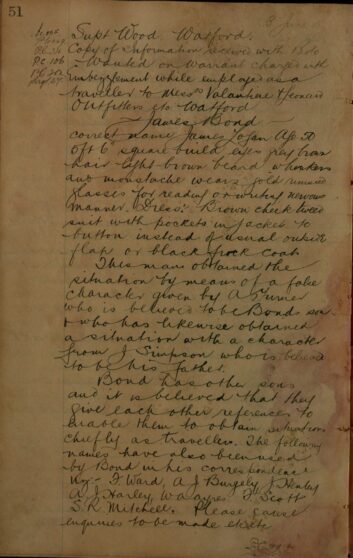 51
8 June
Supt Wood. Watford.
Copy of Information received with
Wanted on Warrant charged with
embezzlement while employed as a
traveller to Messrs Valentine &
Outfitters &c Watford
James Bond
correct name James Logan Age 50
5ft 6 square build eyes grey
hair light brown beard whiskers
and moustache wears gold rimmed
glasses for reading or writing nervous
manner. Dress: Brown check tweed
suit with pockets in jacket to
button instead of usual outside
flap or black frock coat
This man obtained the
situation by means of a false
character given by A Turner
who is believed to be Bonds son
& who has likewise obtained
a situation with a character
from J Simpson who is believed
to be his father.
Bond has other sons
and it is believed that they
give each other references to
enable them to obtain situations
chiefly as travellers. The following
names have also been used
by Bond in his correspondence
viz:- F Ward, A J Burgely, J Henley
A J Harley, W F Scott
S. R. Mitchell. Please cause
enquiries to be made &c &c